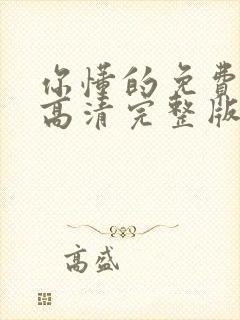 你懂的免费
高清完整版
高盛